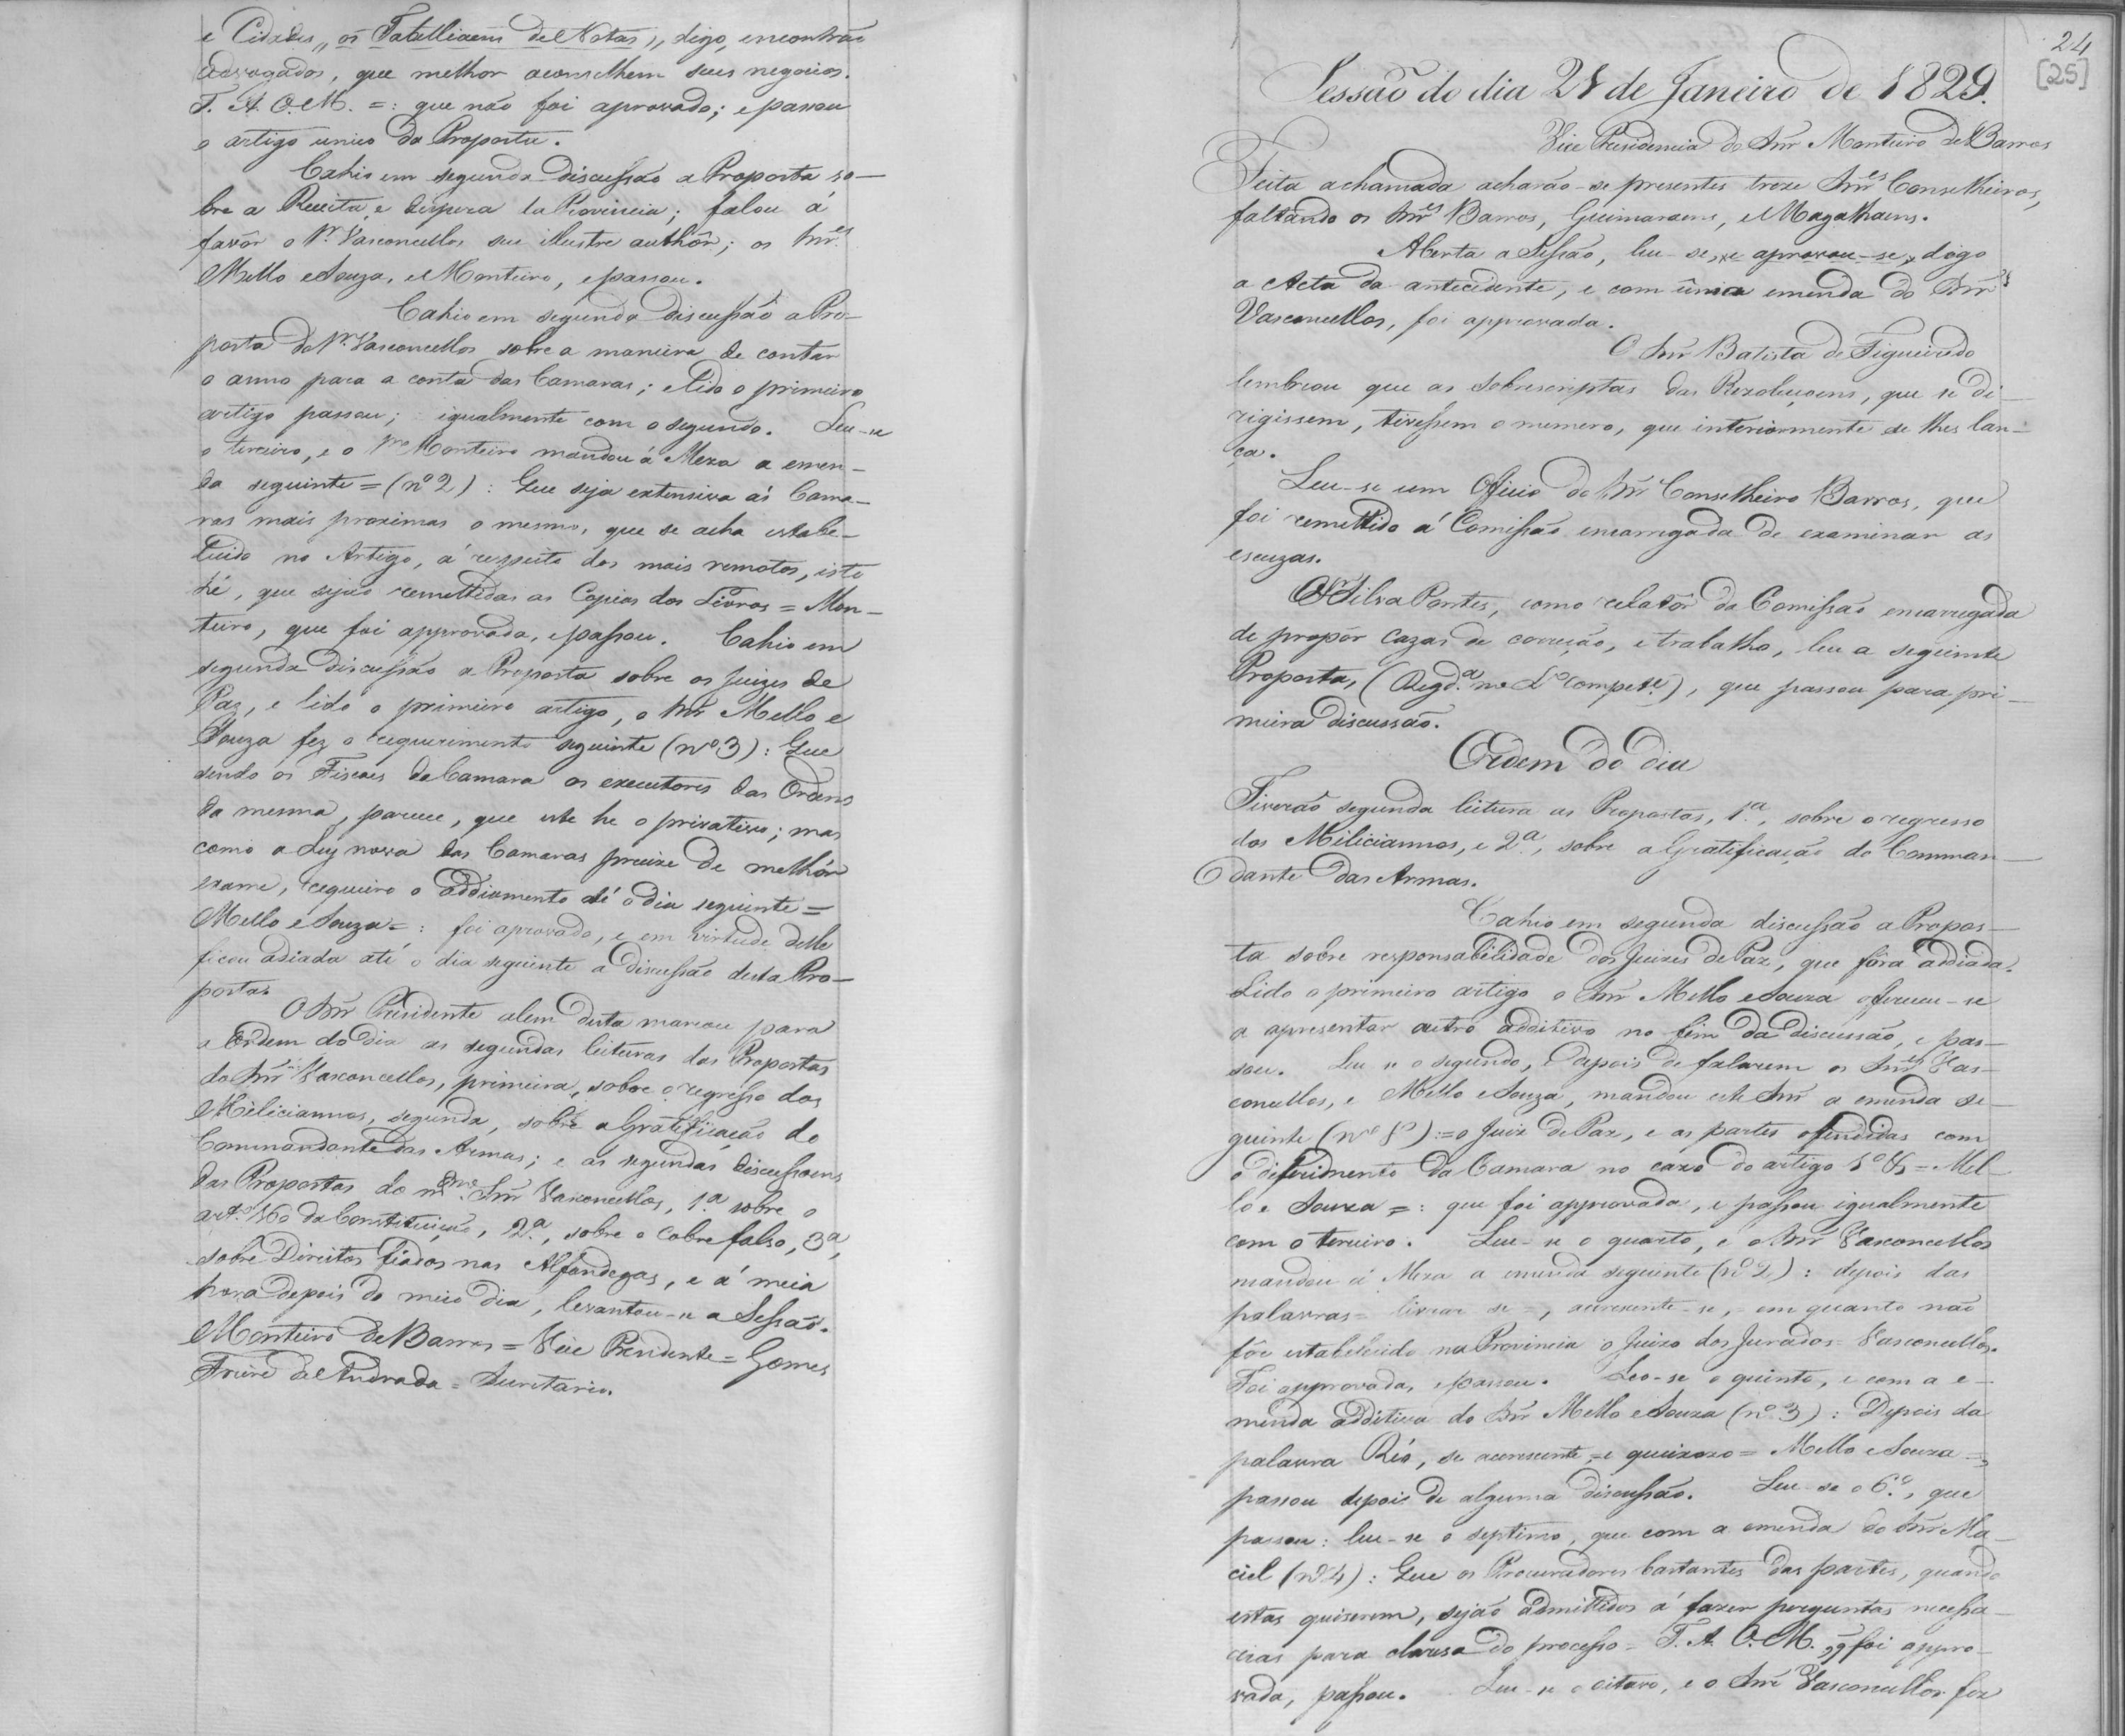 e Cidades,, os Tabelliaens de Notas,, digo, encontrão
Advogados, que melhor aconselhem seus negocios.
T. A. O. M. =: que não foi aprovado; e passou
o artigo unico da Proposta.
Cahio em segunda discussão a Proposta so-
bre a Receita, e despeza da Provincia; falou á
favôr o Sr. Vasconcellos seu illustre authôr; os Snr.es
Mello e Souza, e Monteiro, e passou.
Cahio em segunda discussão a Pro-
posta do Sr. Vasconcellos sobre a maneira de contar
o anno para a conta das Camaras; e lido o primeiro
artigo passou; igualmente com o segundo. Leu-se
o terceiro, e o Snr Monteiro mandou á Meza a emen-
da seguinte = (nº 2): Que seja extensiva ás Cama-
ras mais proximas o mesmo, que se acha estabe-
lecido no Artigo, á respeito das mais remotas, isto
hé, que sejão remettidas as Copias dos Livros = Mon-
teiro, que foi approvada, e passou. Cahio em
segunda discussão a Proposta sobre os Juizes de
Paz, e lido o primeiro artigo, o Snr Mello e
Souza fez o requerimento seguinte (nº 3): Que
sendo os Fiscaes da Camara os executores das Ordens
da mesma, parece, que este he o privativo; mas
como a Ley nova das Camaras precize de melhór
exame, requeiro o addiamento até o dia seguinte =
Mello e Souza =: foi aprovado, e em virtude delle
ficou adiada até o dia seguinte a discussão desta Pro-
posta.
O Snr Presidente alem desta marcou para
a Ordem do dia as segundas leituras das Propostas
do Snr Vasconcellos, primeira, sobre o regresso dos
Milicianos, segunda, sobre a Gratificação do
Commandante das Armas; e as segundas discussoens
das Propostas do mesmo Snr Vasconcellos, 1.ª sobre o
art.º 160 da Constituição, 2.ª, sobre o cobre falso, 3ª,
sobre Direitos fiados nas Alfandegas, e á meia
hora depois do meio dia, levantou-se a Sessão.
Monteiro de Barros = Vice Presidente = Gomes
Freire de Andrada = Secretario.
24
[25]
Sessão do dia 21 de Janeiro de 1829.
Vice Presidencia do Snr Monteiro de Barros
Feita a chamada acharão-se presentes treze Snr.es Conselheiros,
faltando os Snr.es Barros, Guimaraens, e Magalhaens.
Aberta a Sessão, leu-se, e aprovou-se, digo
a Acta da antecedente, e com única emenda do Snr
Vasconcellos, foi approvada.
O Snr Batista de Figueiredo
lembrou que as sobrescriptas das Rezoluçoens, que se di-
rigissem, tivessem o numero, que interiormente se lhes lan-
ça.
Leu-se um Officio do Snr Conselheiro Barros, que
foi remettido á Comissão encarregada de examinar as
escuzas.
O Sr Silva Pontes, como relatôr da Comissão encarregada
de propôr cazas de correção, e trabalho, leu a seguinte
Proposta, (Regd.ª no L.º compet.e), que passou para pri-
meira discussão.
Ordem do dia
Tiverão segunda leitura as Propostas, 1.ª, sobre o regresso
dos Milicianos, e 2.ª, sobre a Gratificação do Comman-
dante das Armas.
Cahio em segunda discussão a Propos-
ta sobre responsabilidade dos Juizes de Paz, que fôra addiada.
Lido o primeiro artigo o Snr Mello e Souza offereceu-se
a apresentar outro additivo no fim da discussão, e pas-
sou. Leu-se o segundo, depois de falarem os Snr.es Vas-
concellos, e Mello e Souza, mandou este Snr a emenda se-
guinte (nº 1º) := o Juiz de Paz, e as partes offendidas com
o deferimento da Camara no cazo do artigo 1º & = Mel-
lo e Souza =: que foi approvada, e passou igualmente
com o terceiro. Leu-se o quarto, e o Snr Vasconcellos
mandou á Meza a emenda seguinte (nº 2): depois das
palavras = livrar-se =, accrescente-se, = em quanto não
fôr estabelecido na Provincia o Juizo dos Jurados = Vasconcellos.
Foi approvada, e passou. Leo-se o quinto, e com a e-
menda additiva do Snr Mello e Souza (nº 3): Depois da
palavra Réo, se accrescente, = e queixozo = Mello e Souza =,
passou depois de alguma discussão. Leu-se o 6.º, que
passou: leu-se o septimo, que com a emenda do Snr Ma-
ciel (nº 4): Que os Procuradores bastantes das partes, quando
estas quiserem, sejão admittidos á fazer perguntas necessa-
rias para clareza do processo = T. A. O. M. ,, foi appro-
vada, passou. Leu-se o oitavo, e o Snr Vasconcellos fez